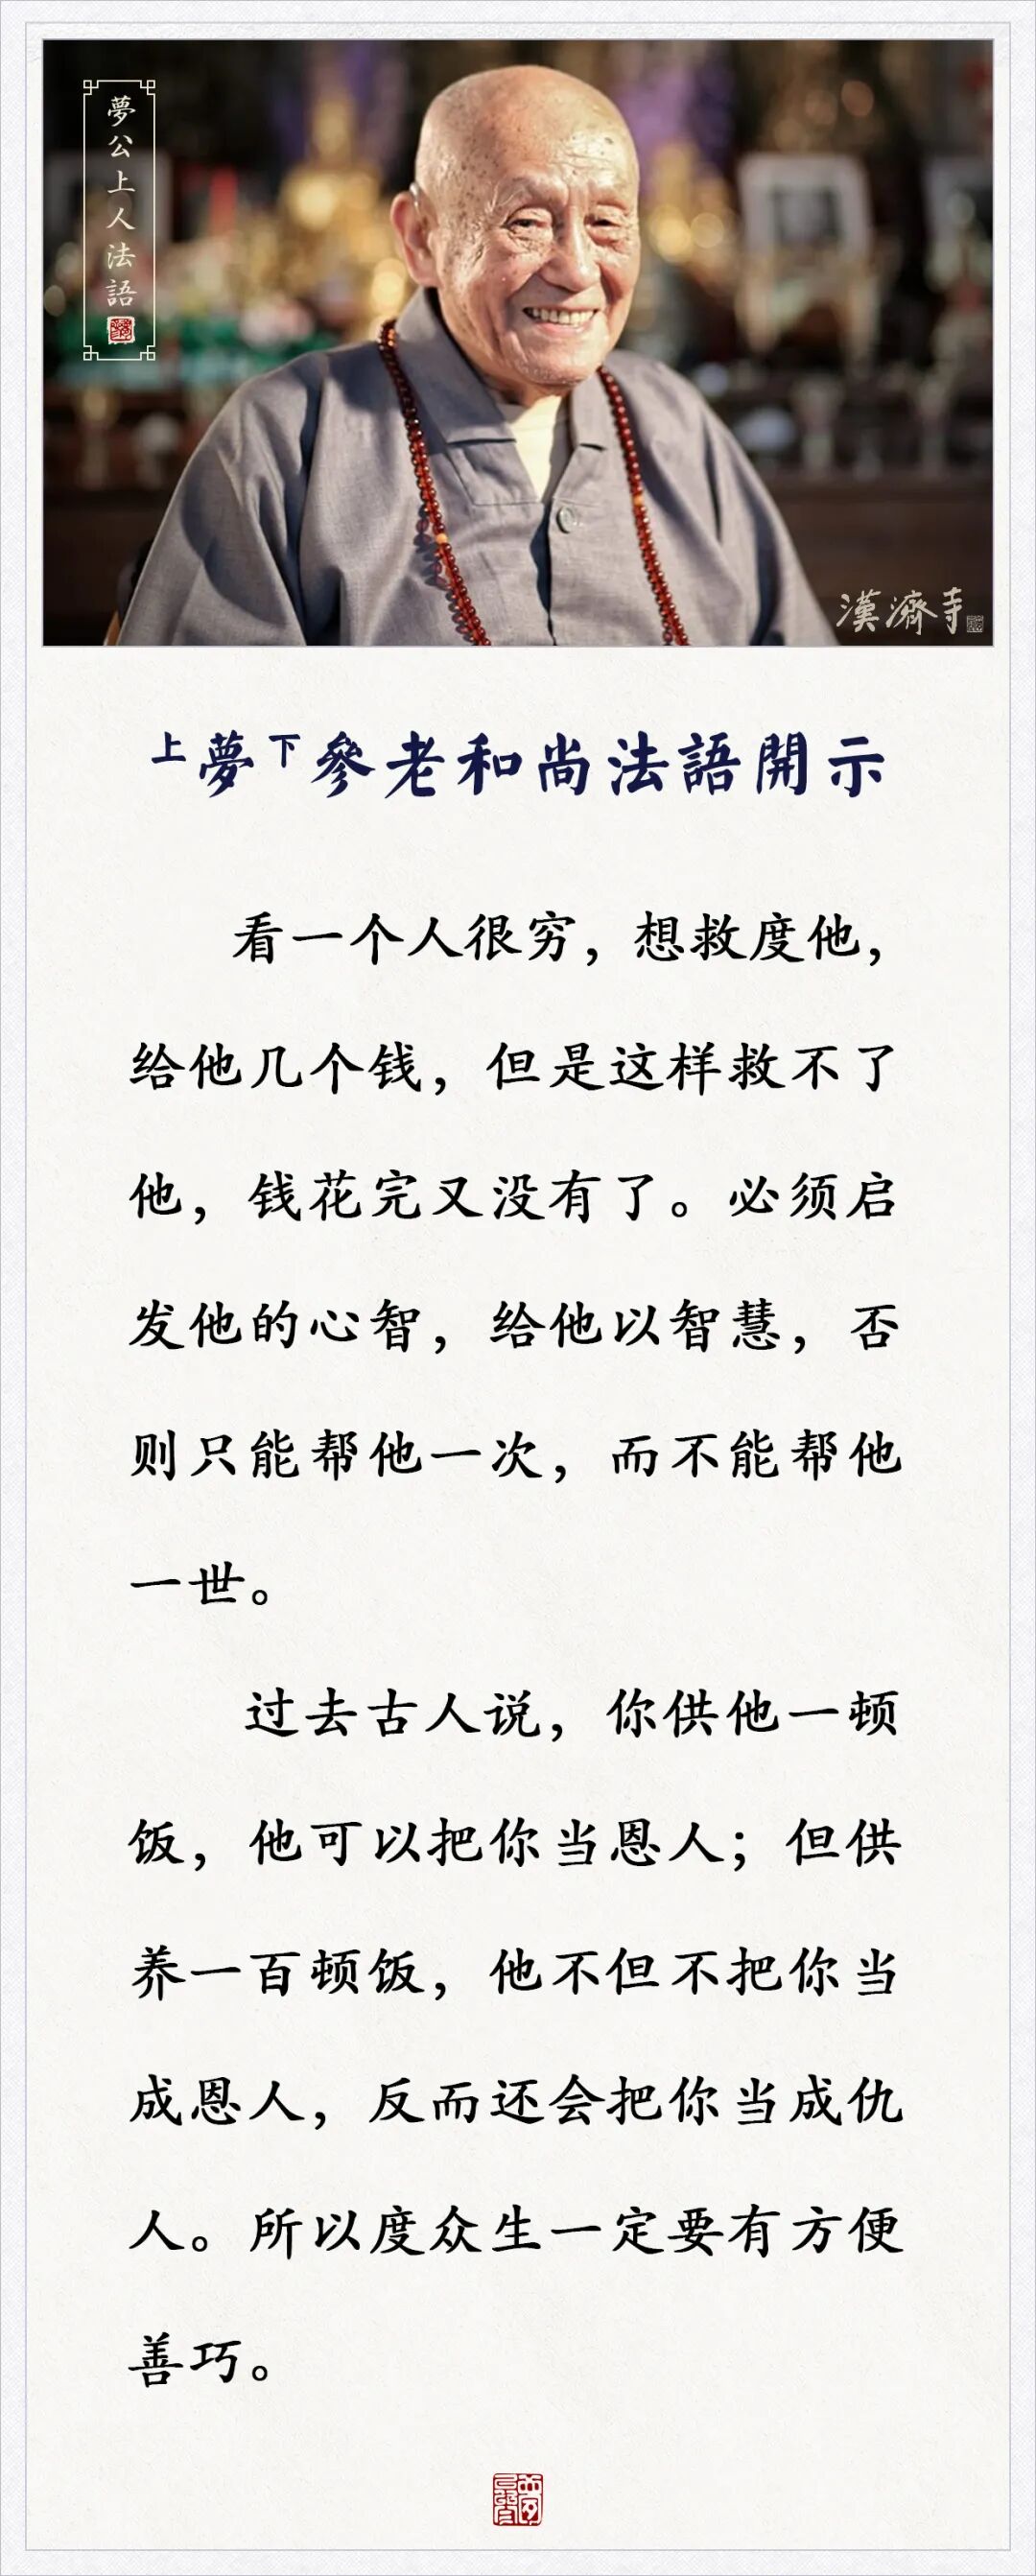 夢公上人法語
漢濟寺
上夢下參老和尚法語開示
看一个人很穷，想救度他，
给他几个钱，但是这样救不了
他，钱花完又没有了。必须启
发他的心智，给他以智慧，否
则只能帮他一次，而不能帮他
一世。
过去古人说，你供他一顿
饭，他可以把你当恩人；但供
养一百顿饭，他不但不把你当
成恩人，反而还会把你当成仇
人。所以度众生一定要有方便
善巧。